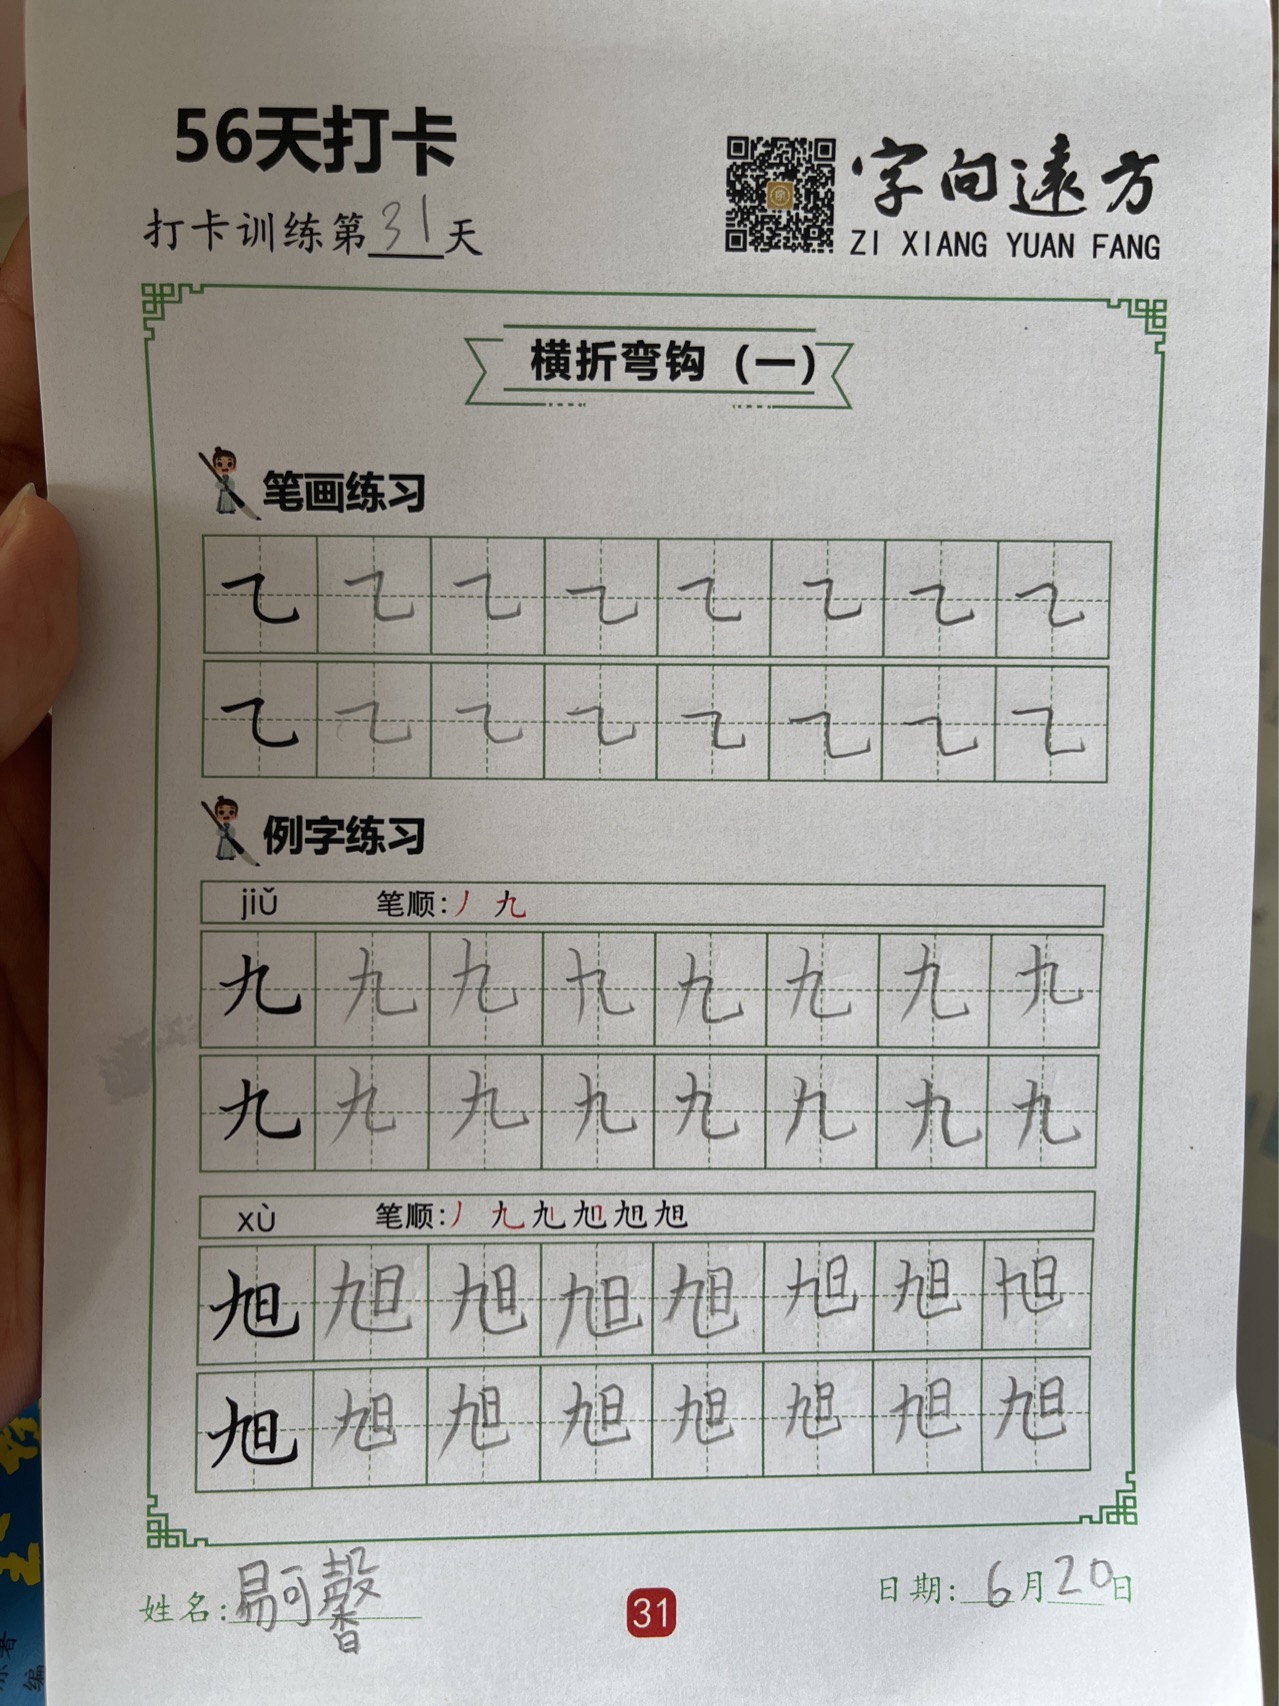 56天打卡
打卡训练第31天
字向遠方
ZI XIANG YUAN FANG
横折弯钩（一）
笔画练习
㇈ ㇈ ㇈ ㇈ ㇈ ㇈ ㇈ ㇈
㇈ ㇈ ㇈ ㇈ ㇈ ㇈ ㇈ ㇈
例字练习
jiǔ 笔顺：丿 九
九 九 九 九 九 九 九 九
九 九 九 九 九 九 九 九
xù 笔顺：丿 九 九 旭 旭 旭
旭 旭 旭 旭 旭 旭 旭 旭
旭 旭 旭 旭 旭 旭 旭 旭
姓名：易可馨
31
日期：6月20日
编